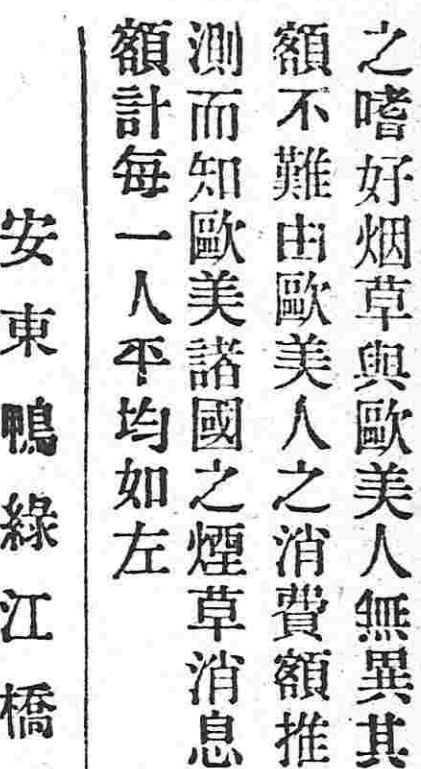 之嗜好烟草與歐美人無異其
額不難由歐美人之消費額推
測而知歐美諸國之煙草消息
額計每一人平均如左
安東鴨綠江橋